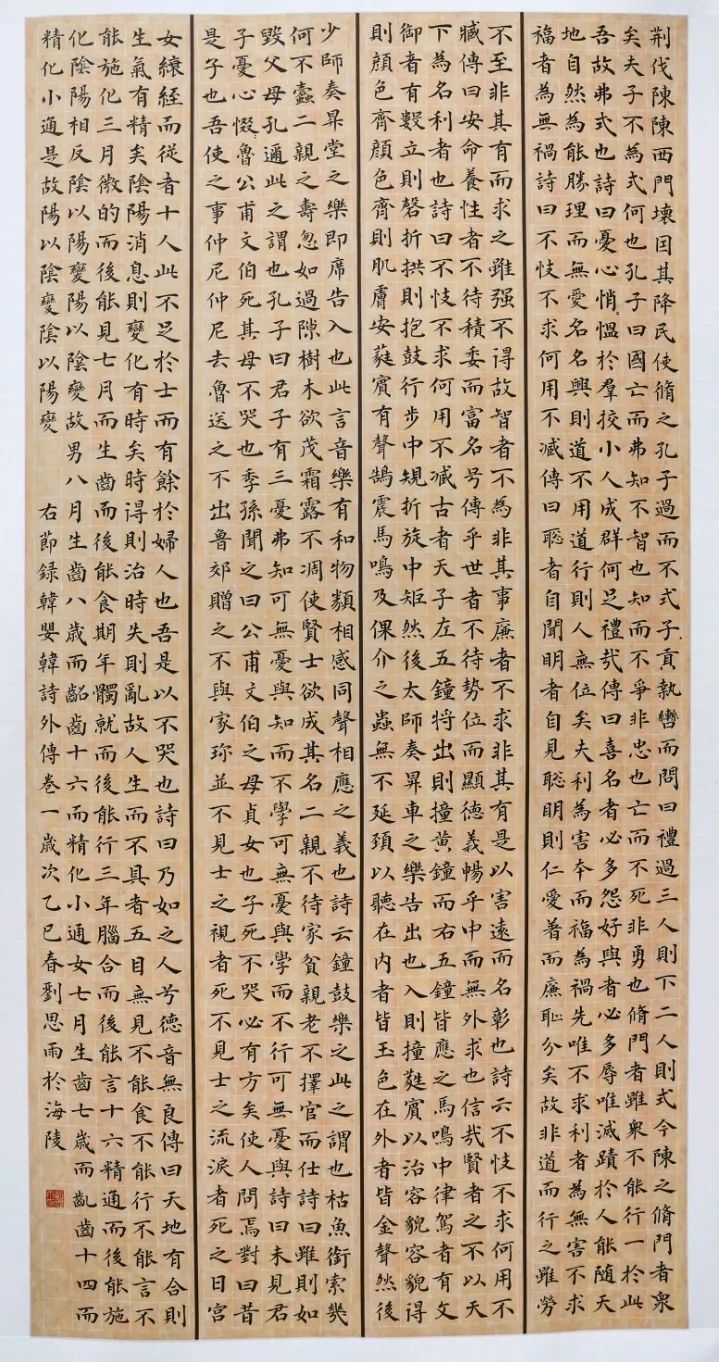 荆伐陳陳西門壞因其降民使脩之孔子過而不式子貢執轡而問曰禮過三人則下二人則式今陳之脩門者衆
矣夫子不為式何也孔子曰國亡而弗知不智也知而不爭非忠也亡而不死非勇也脩門者雖衆不能行一於此
吾故弗式也詩曰憂心悄〻愠於羣狡小人成群何足禮哉傳曰喜名者必多怨好與者必多辱唯滅蹟於人能随天
地自然為能勝理而無愛名名興則道不用道行則人無位矣夫利為害夲而福為禍先唯不求利者為無害不求
福者為無禍詩曰不忮不求何用不臧傳曰聡者自聞明者自見聡明則仁愛著而廉恥分矣故非道而行之雖勞
不至非其有而求之雖强不得故智者不為非其事廉者不求非其有是以害遠而名彰也詩云不忮不求何用不
臧傳曰安命養性者不待積委而富名号傳乎世者不待勢位而顯德義暢乎中而無外求也信哉賢者之不以天
下為名利者也詩曰不忮不求何用不臧古者天子左五鐘將出則撞黄鐘而右五鐘皆應之馬鳴中律駕者有文
御者有數立則磬折拱則抱鼓行步中規折旋中矩然後太師奏昇車之樂告出也入則撞蕤賓以治容貌容貌得
則顔色齊顔色齊則肌膚安蕤賓有聲鵠震馬鳴及倮介之蟲無不延頸以聽在内者皆玉色在外者皆金聲然後
少師奏昇堂之樂即席告入也此言音樂有和物類相感同聲相應之義也詩云鐘鼓樂之此之謂也枯魚銜索幾
何不蠹二親之壽忽如過隙樹木欲茂霜露不凋使賢士欲成其名二親不待家貧親老不擇官而仕詩曰雖則如
毀父母孔邇此之謂也孔子曰君子有三憂弗知可無憂與知而不學可無憂與學而不行可無憂與詩曰未見君
子憂心惙〻魯公甫文伯死其母不哭也季孫聞之曰公甫文伯之母貞女也子死不哭必有方矣使人問焉對曰昔
是子也吾使之事仲尼仲尼去魯送之不出魯郊贈之不與家珎並不見士之視者死不見士之流淚者死之日宮
女縗絰而從者十人此不足於士而有餘於婦人也吾是以不哭也詩曰乃如之人兮德音無良傳曰天地有合則
生氣有精矣陰陽消息則變化有時矣時得則治時失則亂故人生而不具者五目無見不能食不能行不能言不
能施化三月微的而後能見七月而生齒而後能食期年髑就而後能行三年腦合而後能言十六精通而後能施
化陰陽相反陰以陽變陽以陰變故男八月生齒八歲而齠齒十六而精化小通女七月生齒七歲而齔齒十四而
精化小通是故陽以陰變陰以陽變 右節録韓嬰韓詩外傳卷一歲次乙巳春劉思雨於海陵